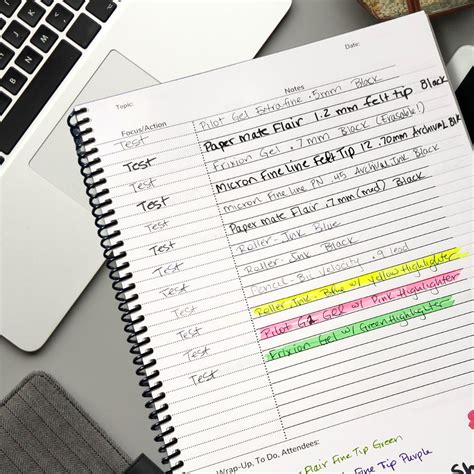 Topic: Date:
Focus/Action Notes
Test Pilot Gel Extrafine .5mm Black
Test Paper mate Flair 1.2 mm felt tip Black
Test Frixion Gel .7mm Black (Erasable!)
Test Micron Fine Line Felt Tip 12 .70mm Archival Blk
Test micron Fine Line PN .45 Archival Ink Black
Test Papermate Flair .7mm (med) Black
Test Roller-Ink Blue
Test Roller-Ink Black
Test Pencil- Velocity .9 lead
Test Roller Ink- Blue w/ Yellow Highlighter
Test Pilot G2 Gel w/ Pink Highlighter
Test Frixion Gel w/ Green Highlighter
Test
Wrap-Up, To Do, Attendees:
Flair Fine Tip Green
Fine Tip Purple